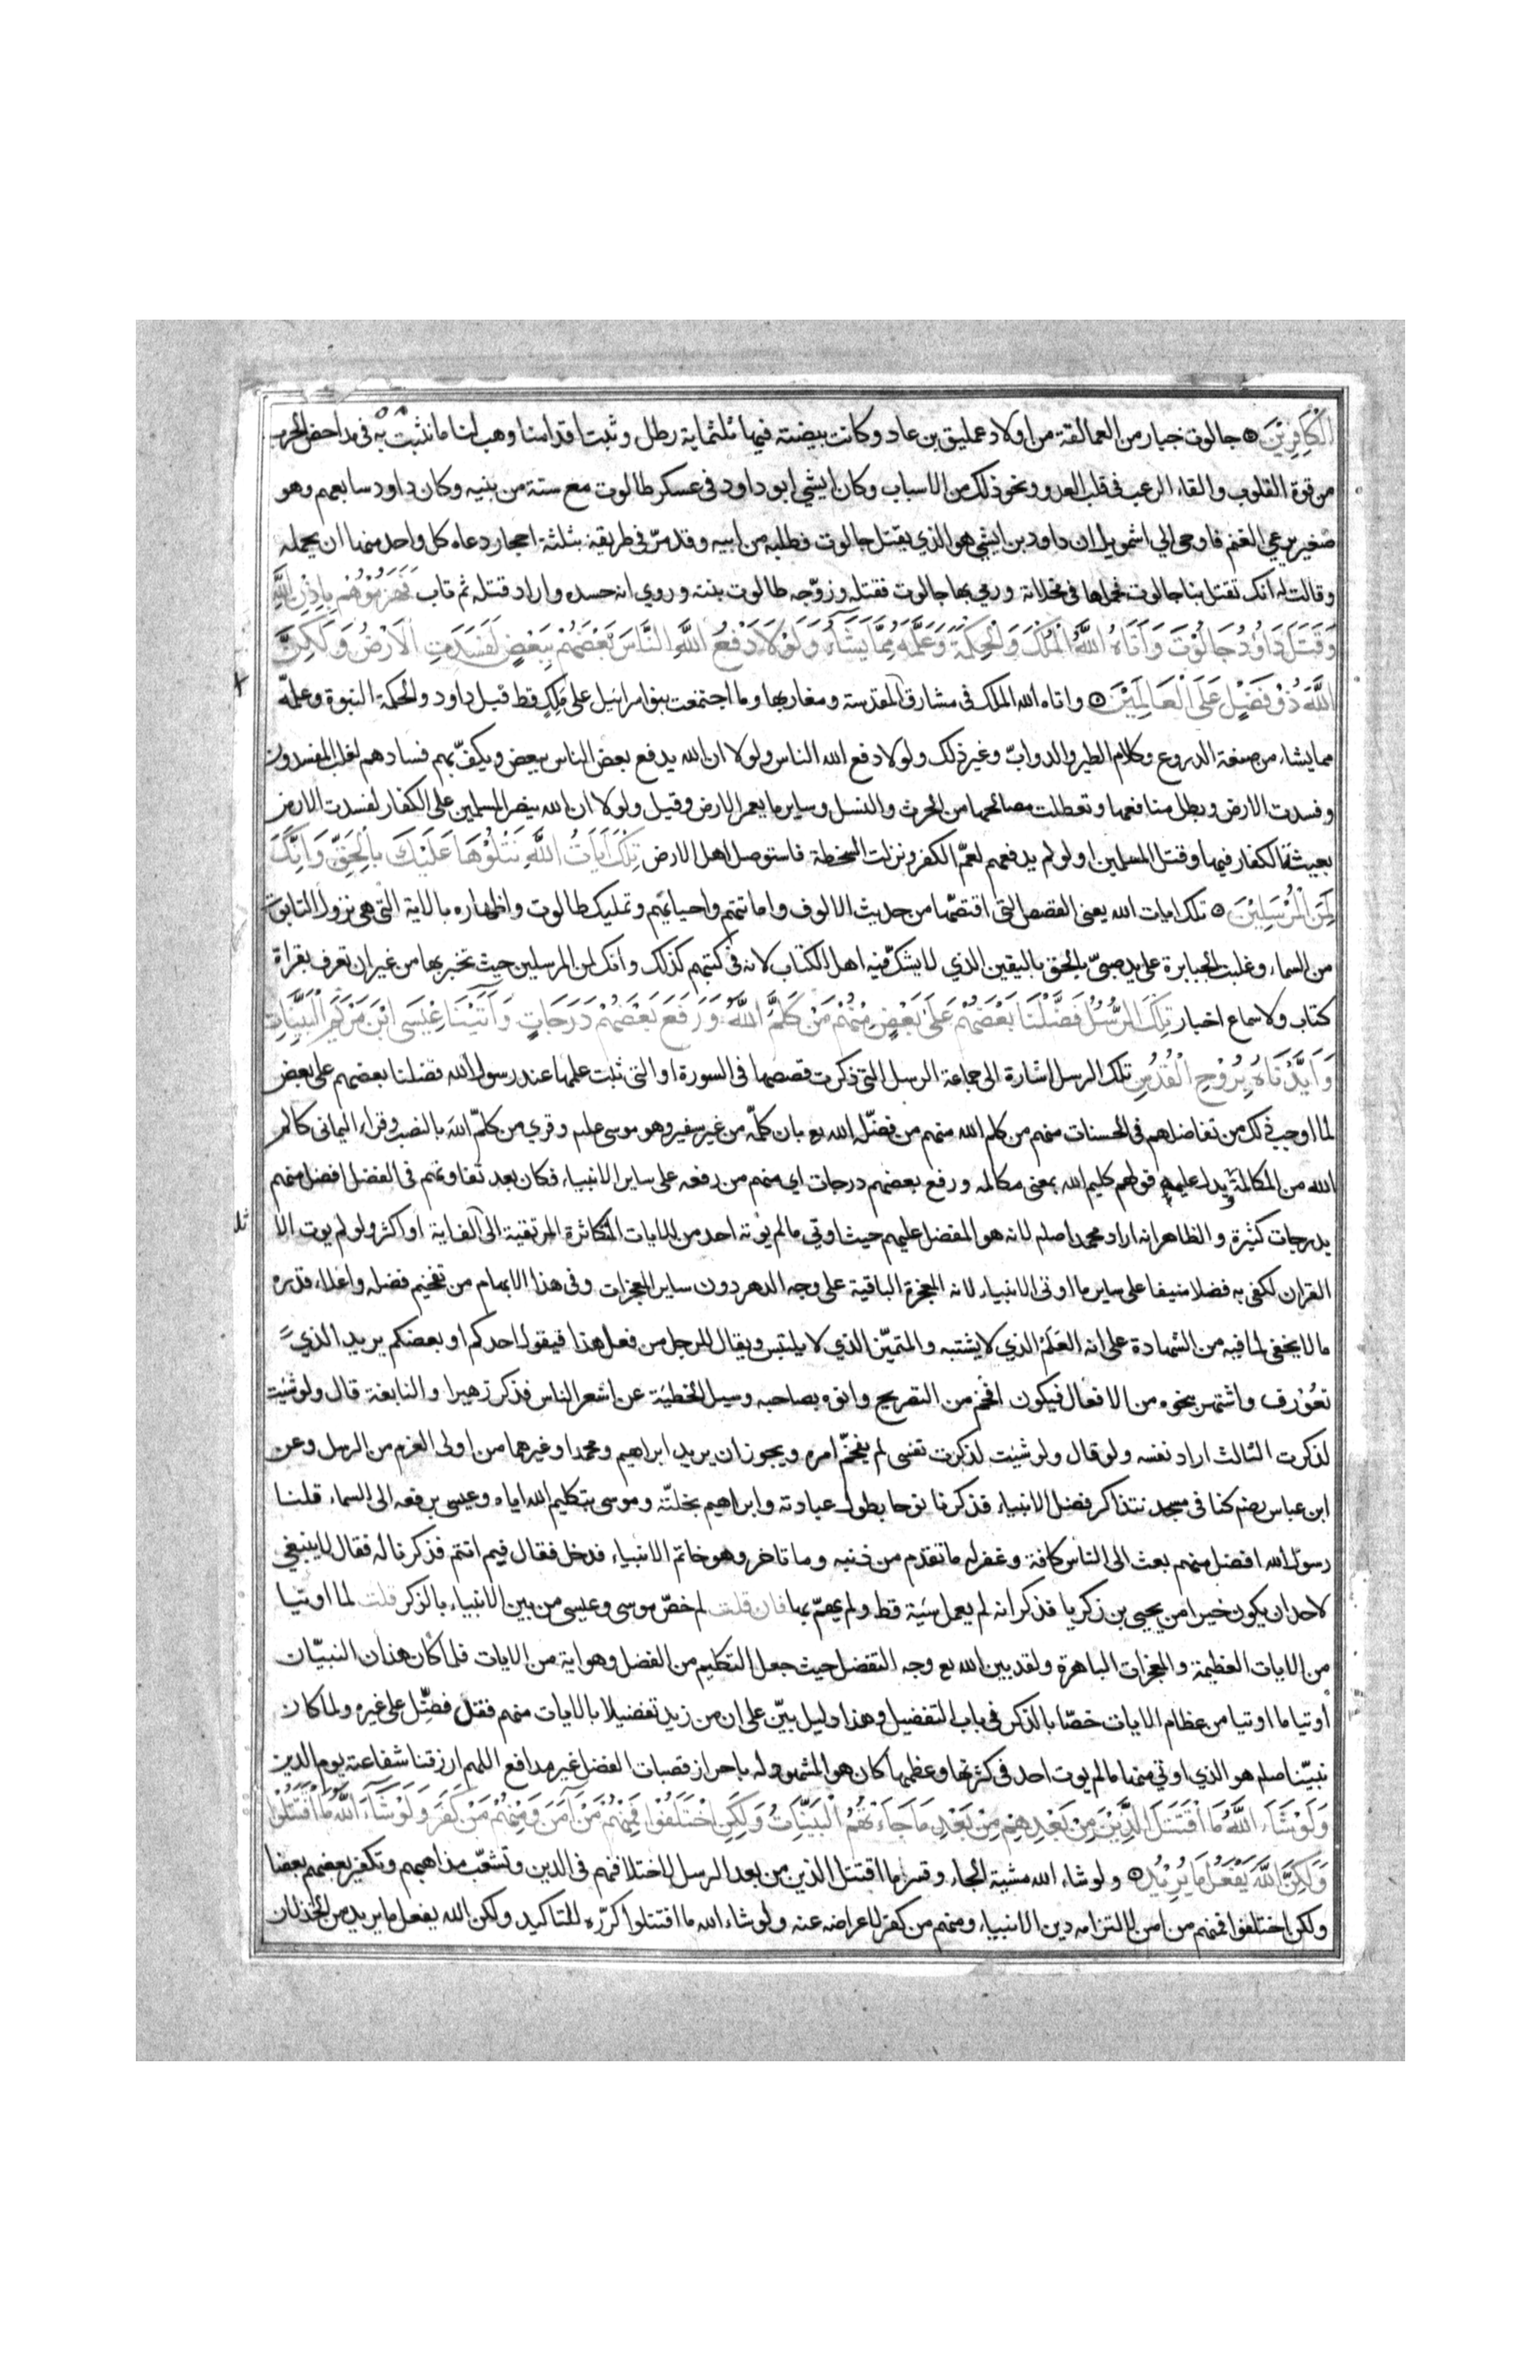 الْكَافِرِيْنَ ۝ جالوت جبار من العمالقة من اولاد عمليق بن عاد وكانت بيضته فيها ثلثماية رطل وثبت اقدامنا وهب لنا ما نثبت به في مداحض الحرب
من قوة القلوب والقاء الرعب في قلب العدو ونحو ذلك من الاسباب وكان ايشي ابو داود في عسكر طالوت مع ستة من بنيه وكان داود سابعهم وهو
صغير يرعي الغنم فاوحي الي اشمويل ان داود بن ايشي هو الذي يقتل جالوت فطلبه من ابيه وقد مرّ في طريقه بثلثة احجار دعاه كل واحد منها ان يحمله
وقالت له انك تقتل بنا جالوت فحملها في مخلاته ورمي بها جالوت فقتله وزوّجه طالوت بنته وروي انه حسده واراد قتله ثم تاب فَهَزَمُوْهُمْ بِاِذْنِ اللّٰهِ
وَقَتَلَ دَاوٗدُ جَالُوْتَ وَاٰتَاهُ اللّٰهُ الْمُلْكَ وَالْحِكْمَةَ وَعَلَّمَهٗ مِمَّا يَشَآءُ وَلَوْلَا دَفْعُ اللّٰهِ النَّاسَ بَعْضَهُمْ بِبَعْضٍ لَفَسَدَتِ الْاَرْضُ وَلٰكِنَّ
اللّٰهَ ذُوْ فَضْلٍ عَلَى الْعَالَمِيْنَ ۝ واتاه الله الملك في مشارق المقدسة ومغاربها وما اجتمعت بنو اسرائيل على مَلِكٍ قط قبل داود والحكمة النبوة وعلمّه
مما يشاء من صنعة الدروع وكلام الطير والدوابّ وغير ذلك ولولا دفع الله الناس ولولا ان الله يدفع بعض الناس ببعض ويكفّ بهم فسادهم لغلب المفسدون
وفسدت الارض وبطل منافعها وتعطلت مصالحها من الحرث والنسل وساير ما يعمر الارض وقيل ولولا ان الله ينصر المسلمين على الكفار لفسدت الارض
بعيث الكفار فيها وقتل المسلمين او لو لم يدفعهم لعمّ الكفر ونزلت السخطة فاستوصل اهل الارض تِلْكَ اٰيَاتُ اللّٰهِ نَتْلُوْهَا عَلَيْكَ بِالْحَقِّ وَاِنَّكَ
لَمِنَ الْمُرْسَلِيْنَ ۝ تلك ايات الله يعني القصص التي اقتصّها من حديث الالوف واماتتهم واحيائهم وتمليك طالوت واظهاره بالاية التي هي نزول التابوت
من السماء وغلبت الجبابرة على يد صبىّ بالحق باليقين الذي لا يشكّ فيه اهل الكتاب لانه في كتبهم كذلك وانك لمن المرسلين حيث تخبر بها من غير ان تعرف بقراة
كتاب ولا سماع اخبار تِلْكَ الرُّسُلُ فَضَّلْنَا بَعْضَهُمْ عَلٰى بَعْضٍ مِنْهُمْ مَنْ كَلَّمَ اللّٰهُ وَرَفَعَ بَعْضَهُمْ دَرَجَاتٍ وَاٰتَيْنَا عِيْسَى ابْنَ مَرْيَمَ الْبَيِّنَاتِ
وَاَيَّدْنَاهُ بِرُوْحِ الْقُدُسِ تلك الرسل اشارة الى جماعة الرسل التي ذكرت قصصها في السورة او التي ثبت علمها عند رسول الله فضلنا بعضهم على بعض
لما اوجب ذلك من تفاضلهم في الحسنات منهم من كلم الله منهم من فضّله الله بع بان كلّمه من غير سفير وهو موسى علبه وقري من كلّم اللهَ بالنصب وقراء اليماني كالم
الله من المكالمة ويدل عليه قولهم كليم الله بمعنى مكالمه ورفع بعضهم درجات اي منهم من رفعه على ساير الانبياء فكان بعد تفاوتهم في الفضل افضل منهم
بدرجات كثيرة والظاهر انه اراد محمدا صلم لانه هو المفضل عليهم حيث اوتي ما لم يؤته احد من الايات المتكاثرة المرتقية الى الف اية او اكثر ولو لم يوت الا
القران لكفى به فضلا منيفا على ساير ما اوتى الانبياء لانه المعجزة الباقية على وجه الدهر دون ساير المعجزات وفي هذا الابهام من تفخيم فضله واعلاء قدره
ما لا يخفى لما فيه من الشهادة على انه العَلَمُ الذي لا يشتبه والمتميّز الذي لا يلتبس ويقال للرجل من فعل هذا فيقول احدكم او بعضكم يريد الذي
تعُوْرف واشتهر بنحوه من الافعال فيكون افخم من التصريح وانوه بصاحبه وسيل الحطيئة عن اشعر الناس فذكر زهيرا والنابغة قال ولو شيت
لذكرت الثالث اراد نفسه ولو قال ولو شيت لذكرت نفسي لم يفخّم امره ويجوز ان يريد ابراهيم ومحمدا وغيرهما من اولى العزم من الرسل وعن
ابن عباس رضه كنا في مسجد نتذاكر فضل الانبياء فذكرنا نوحا بطول عبادته وابراهيم بخلتّه وموسى بتكليم الله اياه وعيسى برفعه الى السماء قلنا
رسول الله افضل منهم بعث الى الناس كافة وغفر له ما تقدّم من ذنبه وما تاخر وهو خاتم الانبياء فدخل فقال فيم انتم فذكرنا له فقال لا ينبغي
لاحد ان يكون خيرا من يحيى بن زكريا فذكر انه لم يعمل سَيئة قط ولم يهمّ بها فان قلت لم خصّ موسى وعيسى من بين الانبياء بالذكر قلت لما اوتيا
من الايات العظيمة والمعجزات الباهرة ولقد بين الله بع وجه التفضل حيث جعل التكليم من الفضل وهو اية من الايات فلما كان هذان النبيّان
اُوتيا ما اوتيا من عظام الايات خصّا بالذكر في باب التفضيل وهذا دليل بيّن على ان من زيد تفضيلا بالايات منهم فقد فضِّل على غيره ولما كان
نبيّنا صلم هو الذي اوتي منها ما لم يوت احد في كثرتها وعظمها كان هو المشهود له باحراز قصبات الفضل غير مدافع اللهم ارزقنا شفاعته يوم الدين
وَلَوْ شَآءَ اللّٰهُ مَا اقْتَتَلَ الَّذِيْنَ مِنْ بَعْدِهِمْ مِنْ بَعْدِ مَا جَآءَتْهُمُ الْبَيِّنَاتُ وَلٰكِنِ اخْتَلَفُوْا فَمِنْهُمْ مَنْ اٰمَنَ وَمِنْهُمْ مَنْ كَفَرَ وَلَوْ شَآءَ اللّٰهُ مَا اقْتَتَلُوْا
وَلٰكِنَّ اللّٰهَ يَفْعَلُ مَا يُرِيْدُ ۝ ولو شاء الله مشية الجاء وقسر ما اقتتل الذين من بعد الرسل لاختلافهم في الدين وتشعّب مذاهبهم وتكفير بعضهم بعضا
ولكن اختلفوا فمنهم من امن لالتزامه دين الانبياء ومنهم من كفر لاعراضه عنه ولو شاء الله ما اقتتلوا كرّره للتاكيد ولكن الله يفعل ما يريد من الخذلان